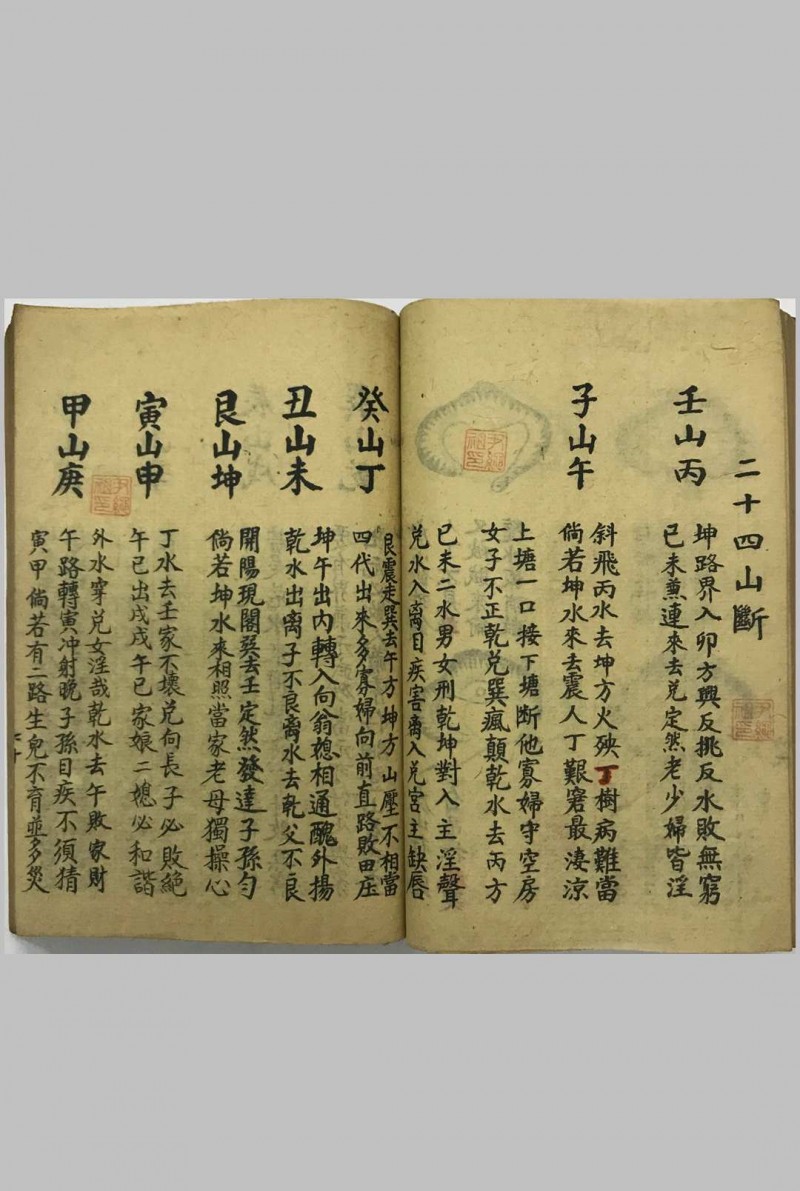 二十四山斷
壬山丙
坤路界入卯方興反挑反水敗無窮
巳未兼連來去兌定然老少婦皆淫
子山午
斜飛丙水去坤方火殃丁樹病難當
倘若坤水來去震人丁艱窘最淒涼
上塘一口接下塘斷他寡婦守空房
女子不正乾兌巽瘋顛乾水去丙方
巳未二水男女刑乾坤對入主淫聲
兌水入离目疾害离入兌宮主缺唇
癸山丁
艮震走巽去午方坤方山壓不相當
四代出來多寡婦向前直路敗田庄
丑山未
坤午出內轉入向翁媳相通醜外揚
乾水出离子不良离水去乾父不良
艮山坤
開陽現閣巽去壬定然發達子孫勻
倘若坤水來相照當家老母獨操心
寅山申
丁水去壬家不壞兌向長子必敗絕
午巳出戌戌午巳家娘二媳必和諧
甲山庚
外水穿兌女淫哉乾水去午敗家財
午路轉寅冲射晚子孫目疾不須猜
寅甲倘若有二路生兒不育並多災